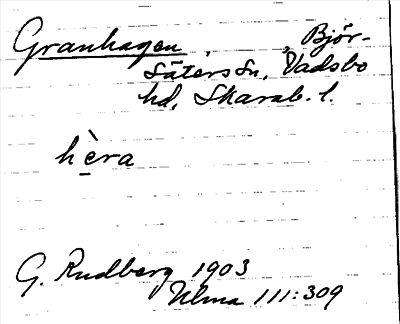 Granhagen, , Björ-
säters sn, Vadsbo
hd, Skarab. l.
hèra
G. Rudberg 1903
Ulma 111:309